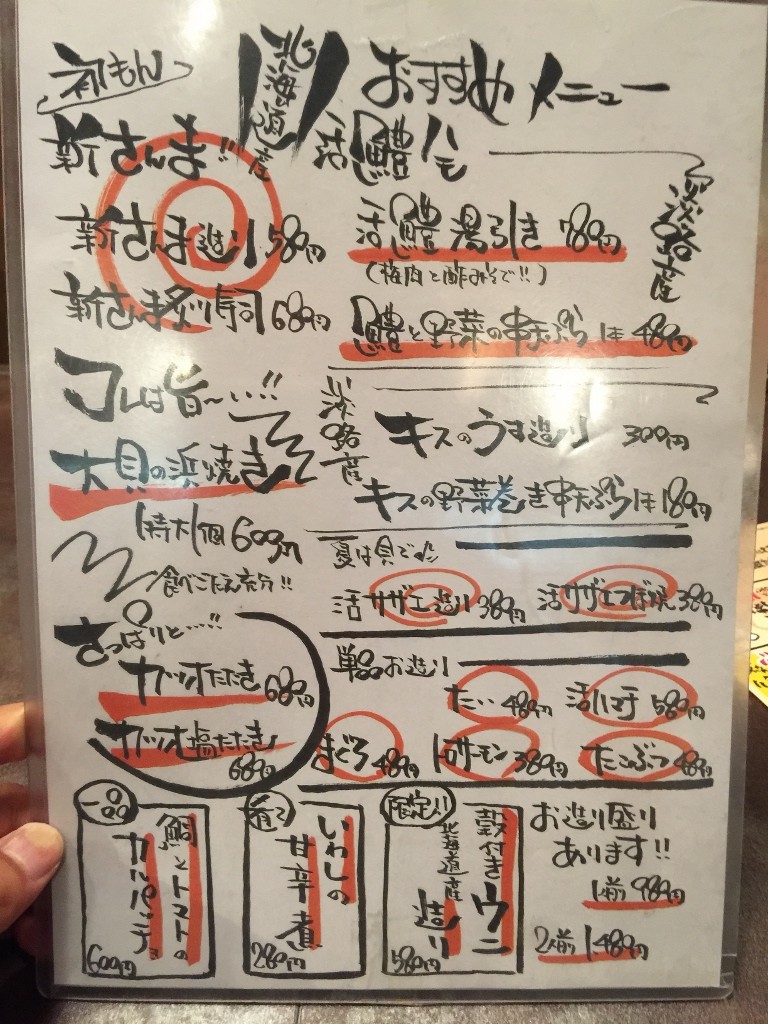 おすすめメニュー
初もん
北海道産
新さんま!!
新さんま造り 580円
新さんま炙り寿司 680円
活鱧ハモ
淡路産
活鱧湯引き 780円
(梅肉と酢みそで!!)
鱧と野菜の串天ぷら 1本 480円
コレは旨〜い!!
大貝の浜焼き
特大1個 600円
食べごたえ充分!!
淡路産
キスのうす造り 300円
キスの野菜巻き串天ぷら 1本 180円
夏は貝で
活サザエ造り 380円
活サザエつぼ焼 380円
さっぱりと…!!
カツオたたき 680円
カツオ塩たたき 680円
単品お造り
たい 480円
活ハマチ 580円
まぐろ 480円
トロサーモン 380円
たこぶつ 480円
一品
鯛とトマトの
カルパッチョ
600円
いわしの
甘辛煮
280円
限定
殻付きウニ
北海道産
造り
580円
お造り盛り
あります!!
1人前 980円
2人前 1,480円